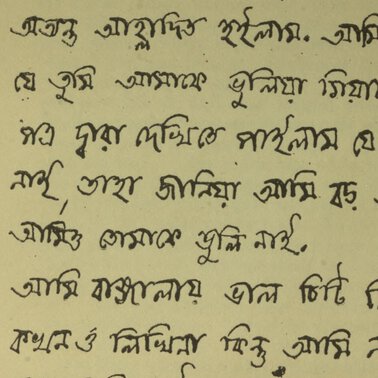 অত্যন্ত আহ্লাদিত হইলাম. আমি
যে তুমি আমাকে ভুলিয়া গিয়া
পত্র দ্বারা দেখিতে পাইলাম যে
নাই, তাহা জানিয়া আমি বড়
আমিও তোমাকে ভুলি নাই.
আমি বাঙ্গালায় ভাল চিটি
কখনও লিখিনা কিন্তু আমি